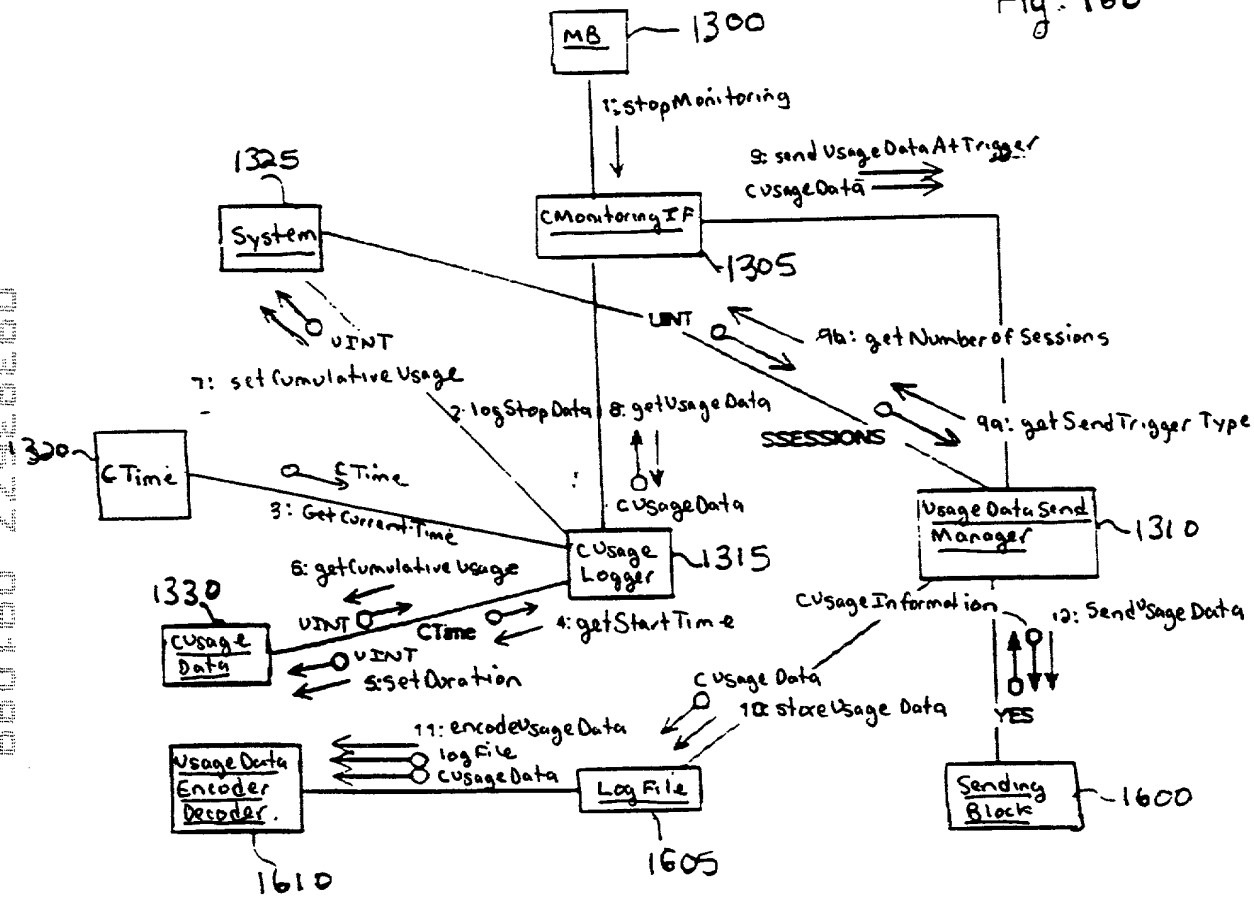 Fig. 16B
MB
1300
1: stopMonitoring
1325
9: sendUsageDataAtTrigger
CUsageData
System
CMonitoringIF
1305
UINT
UINT
9b: getNumberofSessions
7: setCumulativeUsage
2: logStopData
8: getUsageData
9a: getSendTriggerType
SSESSIONS
1320
CTime
CTime
CUsageData
3: GetCurrentTime
UsageDataSend
Manager
1310
CUsage
Logger
1315
6: getCumulativeUsage
1330
UINT
CTime
4: getStartTime
CUsageInformation
12: SendUsageData
CUsage
Data
UINT
5: SetDuration
CUsageData
10: storeUsageData
YES
11: encodeUsageData
logFile
CUsageData
UsageData
Encoder
Decoder.
LogFile
Sending
Block
1600
1605
1610